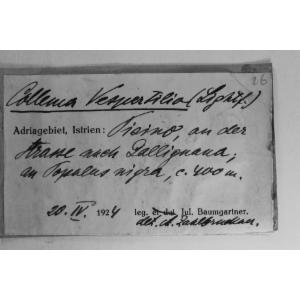 26
Collema Vespertilio (Lightf.)
Adriagebiet, Istrien: Pisino, an der
Strasse nach Gallignana;
an Populus nigra, c. 400 m.
20. IV. 1924 leg. et det. Jul. Baumgartner.
det. A. Zahlbruckner.